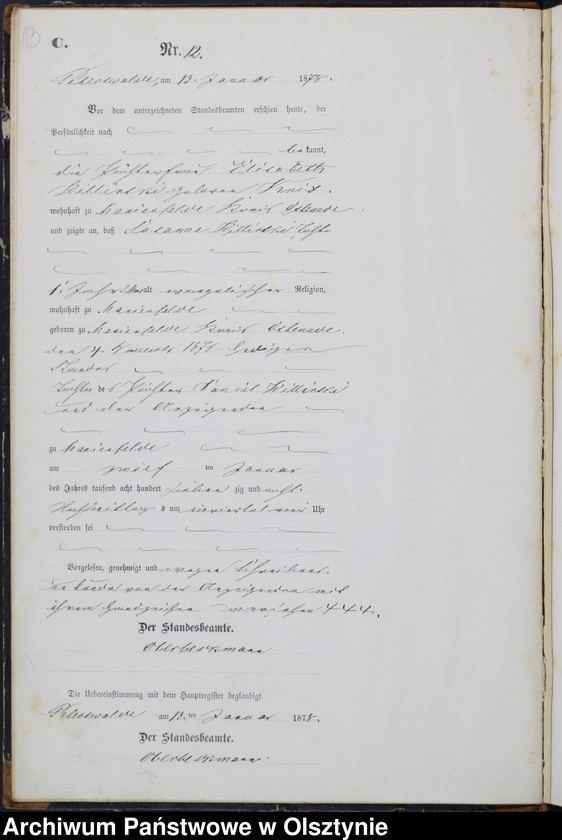 13
C.
Nr. 12.
Peterswalde, am 13. Januar 1878.
Vor dem unterzeichneten Standesbeamten erschien heute, der
Persönlichkeit nach
bekannt,
die Pächterfrau Elisabeth
geboren
wohnhaft zu Marienfelde Kreis Osterode
und zeigte an, daß Tochter
1. Jahr alt evangelischer Religion,
wohnhaft zu Marienfelde
geboren zu Marienfelde Kreis Osterode.
den 4.
Tochter des Pächters Daniel
und der Anzeigenden
zu Marienfelde
am zwölften Januar
des Jahres tausend acht hundert siebenzig und acht
Nachmittags um Uhr
verstorben sei
Vorgelesen, genehmigt und wegen Schreibens-
unkunde von der Anzeigenden mit
ihrem Handzeichen versehen +++.
Der Standesbeamte.
Oberbeckmann
Die Uebereinstimmung mit dem Hauptregister beglaubigt.
Peterswalde am 13. ten Januar 1878.
Der Standesbeamte.
Oberbeckmann.
Archiwum Państwowe w Olsztynie